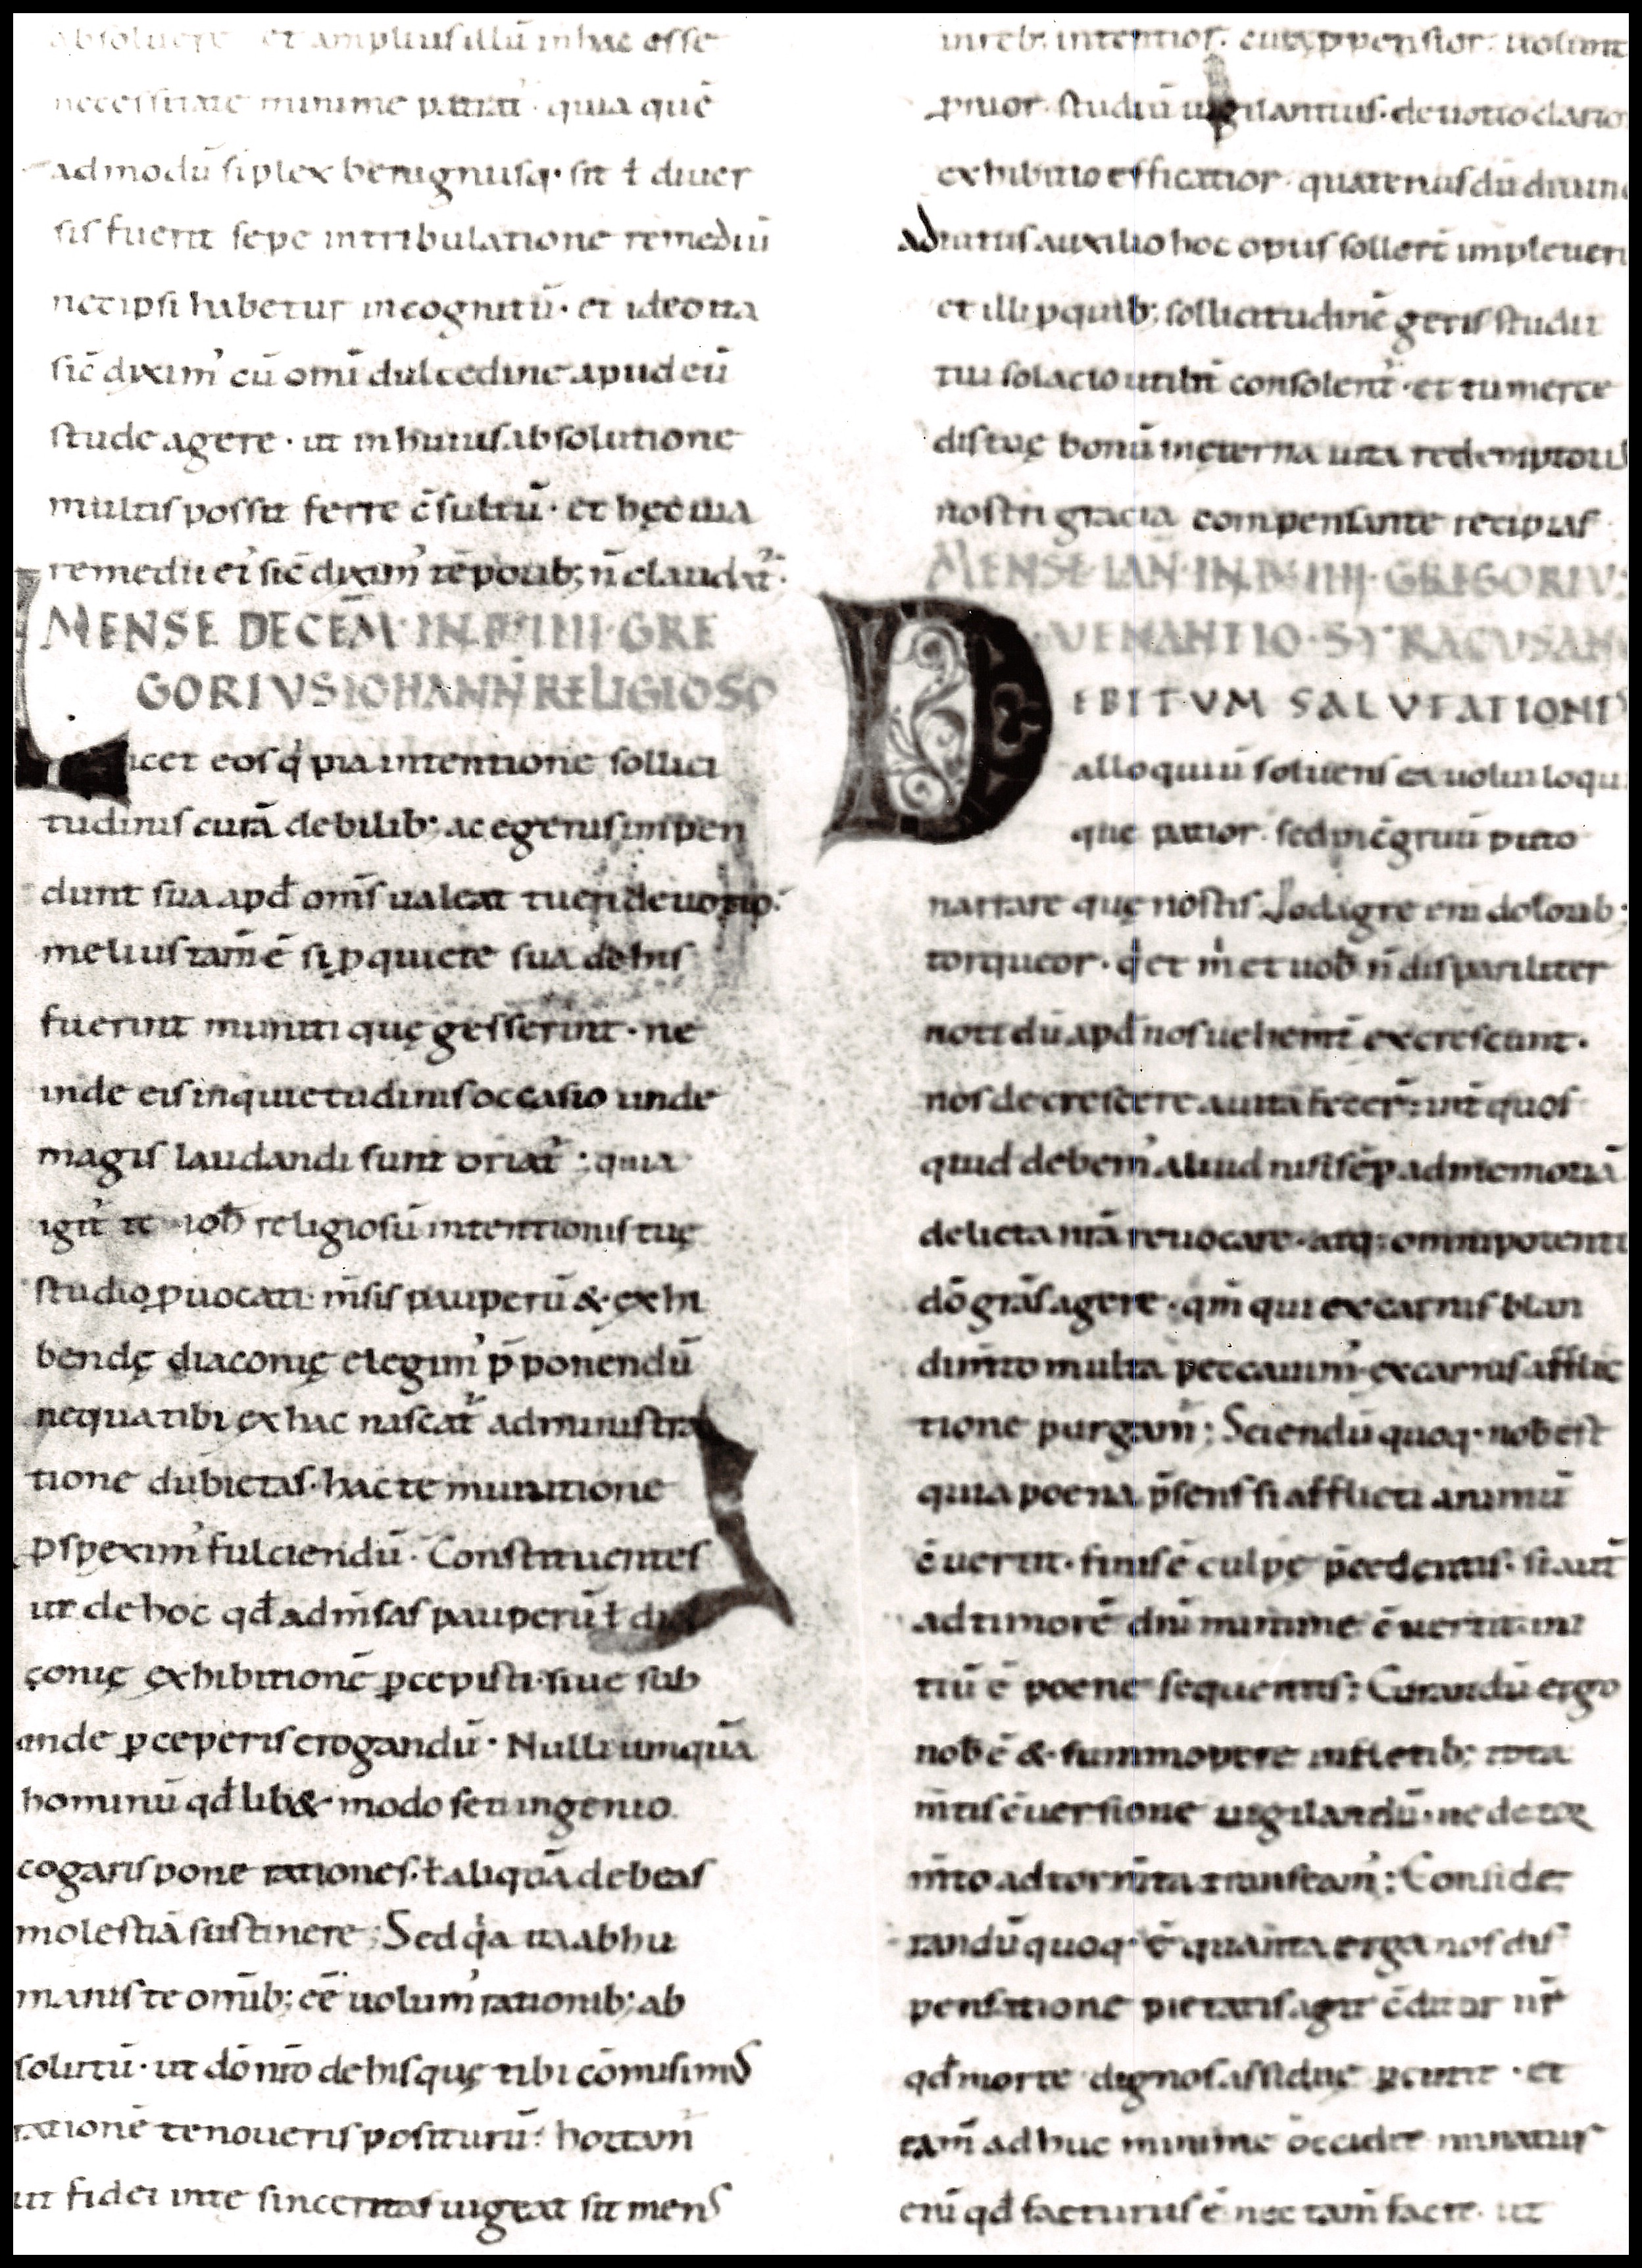 absoluere et amplius illū in hac esse
necessitate minime patiat̄ · quia quē
admodū siplex benignusq· sit ł diuer
sis fuerit sepe in tribulatione remediū
nec ipsi habetur incognitū · et ideo ita
sic̄ dixim' cū omī dulcedine apud eū
stude agere · ut in huius absolutione
multis possit ferre c̄sultū · et hęc uia
remedii ei' sic̄ dixim' tēporib; n̄ claudat̄·
MENSE DECEM̄· IN̄D· IIII· GRE
GORIVS IOHANN̄ RELIGIOSO
icet eos q' pia intentione sollici
tudinis curā debilib; ac egenis impen
dunt sua apd̄ om̄s ualeat tueri deuotio·
melius tam̄ ē si ꝓ quiete sua de his
fuerint muniti quę gesserint · ne
inde eis inquietudinis occasio unde
magis laudandi sunt oriat̄ : quia
igit̄ te ioh̄ religiosū intentionis tuę
studio ꝓuocati m̄sis pauperū & exhi
bendę diaconię elegim' p̄ponendū
nequa tibi ex hac nascat̄ administra
tione dubietas · hac te munitione
ꝓspexim' fulciendū · Constituentes
ut de hoc qd̄ ad m̄sas pauperū ł dia
conię exhibitionē ꝑcepisti · siue sub
inde ꝑceperis erogandū · Nulli umquā
hominū qd̄lib& modo seu ingenio
cogaris pone rationes · ł aliquā debeas
molestiā sustinere ; Sed qa ita ab hu
manis te omīb; eē uolum' rationib; ab
solutū · ut dō nr̄o de his quę tibi cōmisim'
rationē te noueris positurū : hortam'
ut fidei in te sinceritas uigeat sit mens
in reb; intentior · cura ppensior · uolunt
prior · studiū uigilantius · deuotio clario
exhibitio efficatior · quatenus dū diuin
adiutus auxilio hoc opus sollert̄ impleueri
et illi ꝓ quib; sollicitudinē geris studii
tui solacio utilit̄ consolent̄ · et tu merce
dis tuę bonū in ęterna uita redemptoris
nostri gracia compensante recipias
MENSE IAN̄· IN̄D· IIII· GREGORIV;
VENANTIO· SYRACVSAN
EBITVM SALVTATIONIS
alloquiū soluens ea uolui loqui
que patior · sed p̄ic̄gruū puto
narrare quę nostis · Podagre eni dolorib;
torqueor · q' et m' et uob̄ n̄ dispariliter
noti dū apd̄ nos uehem̄t̄ excrescunt ·
nos decrescere a uita fecer̄ : int̄ quos
quid debem' aliud nisi sēp ad memoriā
delicta nr̄a reuocare · atq; omnipotenti
dō grās agere · qm̄ qui ex carnis blan
dim̄to multa peccauim' · ex carnis afflic
tione purgam̄ ; Sciendū quoq· nob̄ est
quia poena p̄sens si afflicti animū
c̄uertit · finis ē culpę p̄cedentis · si aut̄
ad timorē dn̄i minime c̄uertit ini
tiū ē poene sequentis ; Curandū ergo
nob̄ ē & summopere in fletib; tota
m̄tis c̄uersione uigilandū · ne de tor
m̄to ad torm̄ta transeam' ; Conside
randū quoq· ē quanta erga nos dis
pensatione pietatis agit c̄ditor nr̄
qd̄ morte dignos assidue ꝑcutit · et
tam̄ adhuc minime occidit · minatur
eni qd̄ facturus ē nec tam̄ facit · ut